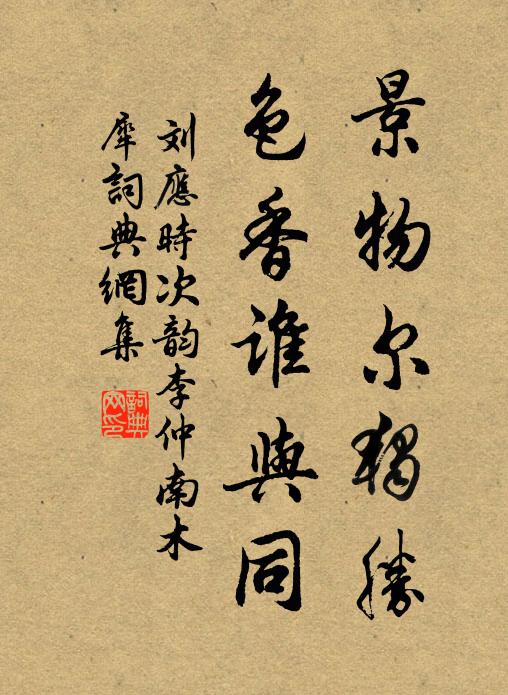 景物尔獨勝
色香誰與同
刘應時次韵李仲南木
犀詞典網集
詞典
网印